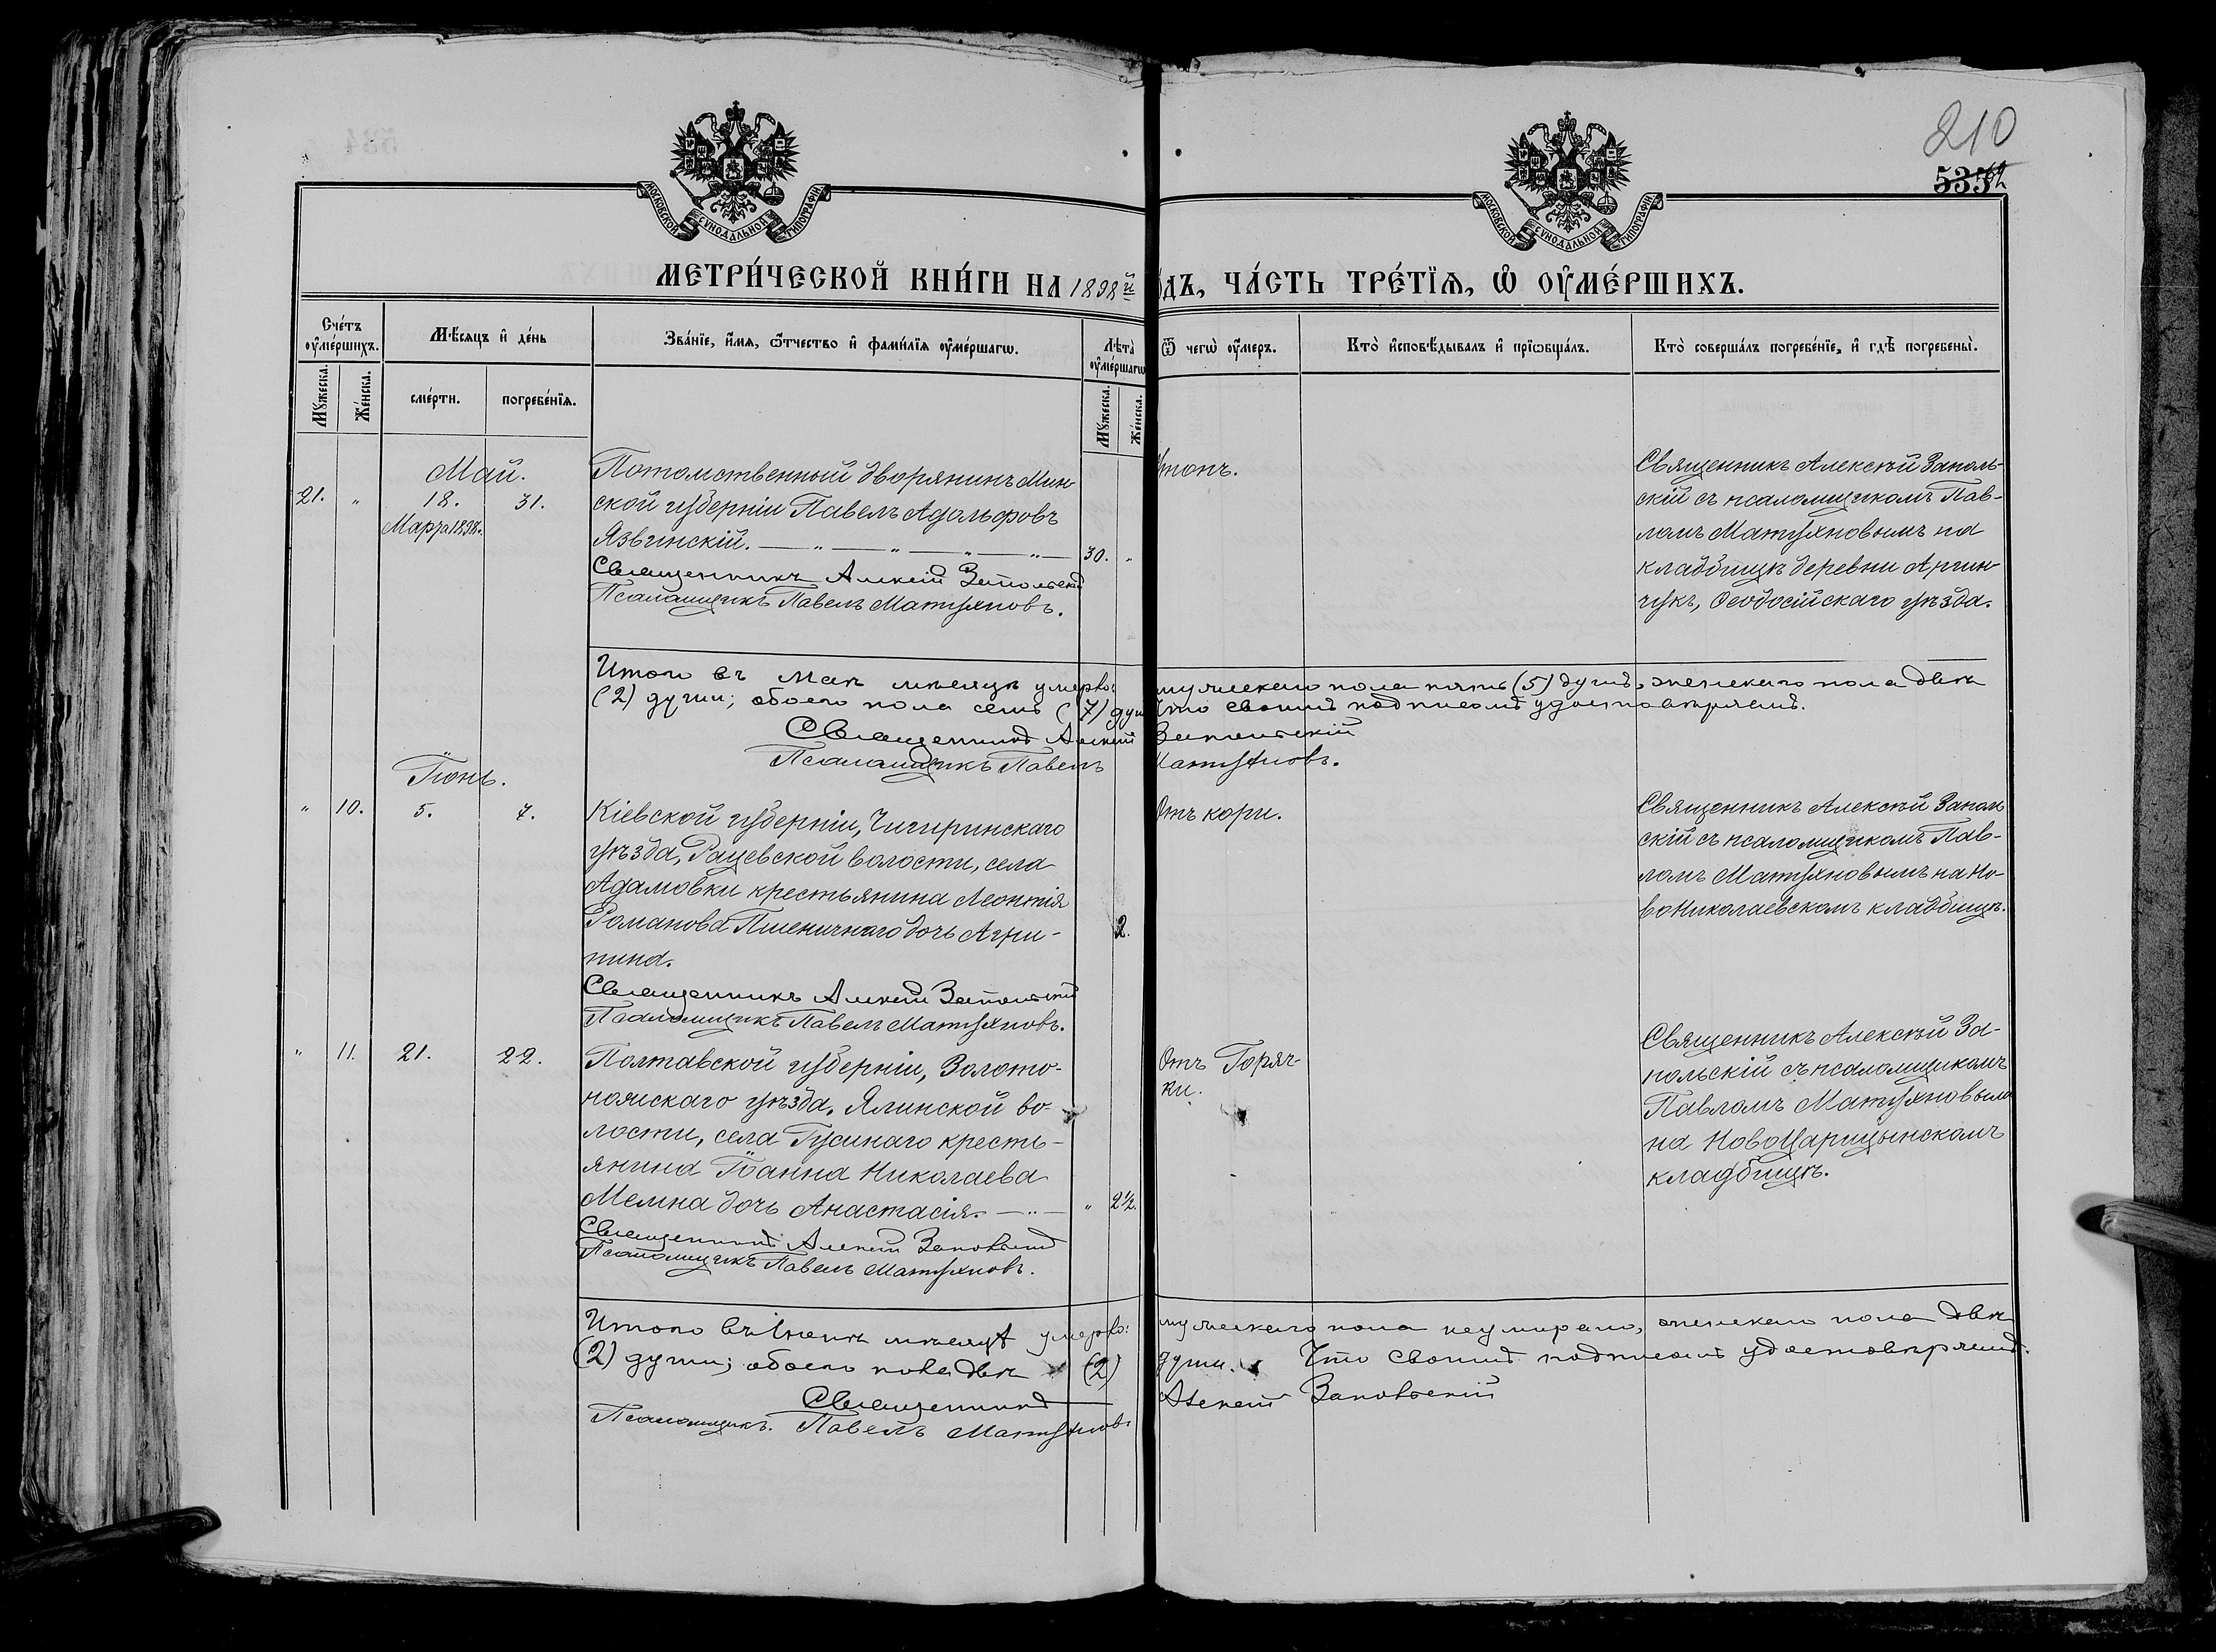 210
535
МОСКОВСКОЙ СѴНОДАЛЬНОЙ ТИПОГРАФІИ
МОСКОВСКОЙ СѴНОДАЛЬНОЙ ТИПОГРАФІИ
МЕТРИ́ЧЕСКОЙ КНИ́ГИ НА 1898й
ДЪ, ЧА́СТЬ ТРЕ́ТЇѦ, Ѡ҆ ОУ҆МЕ́РШИХЪ.
Сче́тъ оу҆ме́ршихъ.
Мꙋ́жеска.
Же́нска.
Мѣ́сѧцъ и҆ де́нь
сме́рти.
погребе́нїѧ.
Зва́нїе, и҆́мѧ, ѻ҆́тчество и҆ фами́лїѧ оу҆ме́ршагѡ.
Лѣта̀ оу҆ме́ршагѡ
Мꙋ́жеска.
Же́нска.
Ѿ чегѡ̀ оу҆́меръ.
Кто̀ и҆сповѣ́дывалъ и҆ прїѡбща́лъ.
Кто̀ соверша́лъ погребе́нїе, и҆ гдѣ̀ погребены̀.
Май.
21. " 18. 31.
Марта 1898г.
Потомственный дворянинъ Мин-
ской губерніи Павелъ Адольфовъ
Язвинскій. — " — " — " — " — 30. "
Священникъ Алексій Запольскій
Псаломщикъ Павелъ Матухновъ.
топъ.
Священникъ Алексѣй Заполь-
скій съ псаломщикомъ Пав-
ломъ Матухновымъ на
кладбищѣ деревни Аргин-
чукъ, Ѳеодосійскаго уѣзда.
Итого въ маѣ мѣсяцѣ умерло: мужескаго пола пять (5) душъ, женскаго пола двѣ
(2) души; обоего пола семь (7) душ Что своимъ подписомъ удостовѣряемъ.
Священникъ Алексій Запольскій
Псаломщикъ Павелъ Матухновъ.
Іюнь.
" 10. 5. 7.
Кіевской губерніи, Чигиринскаго
уѣзда, Рацевской волости, села
Адамовки крестьянина Леонтія
Романова Пшеничнаго дочь Агри-
пина.
2.
Священникъ Алексій Запольскій
Псаломщикъ Павелъ Матухновъ.
Отъ кори.
Священникъ Алексѣй Заполь
скій съ псаломщикомъ Пав-
ломъ Матухновымъ на Но-
воНиколаевскомъ кладбищѣ.
" 11. 21. 22.
Полтавской губерніи, Золото-
ношскаго уѣзда, Ялинской во-
лости, села Гусинаго кресть-
янина Іоанна Николаева
Мелна дочь Анастасія. — " — " 2½.
Священникъ Алексій Запольскій
Псаломщикъ Павелъ Матухновъ.
Отъ Горяч-
ки.
Священникъ Алексѣй За-
польскій съ псаломщикомъ
Павломъ Матухновымъ
на НовоЦарицынскомъ
кладбищѣ.
Итого въ Іюнѣ мѣсяцѣ умерло: мужескаго пола не умирало, женскаго пола двѣ
(2) души; обоего пола двѣ (2) души. Что своимъ подписомъ удостовѣряемъ.
Священникъ Алексій Запольскій
Псаломщикъ. Павелъ Матухновъ